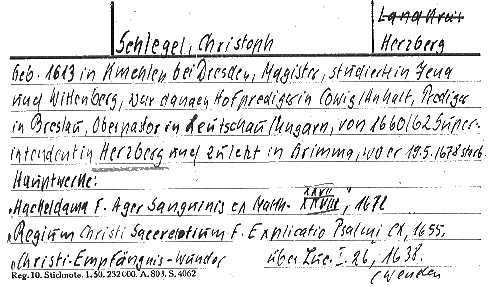 Landkreis
Schlegel, Christoph Herzberg
Geb. 1613 in Kmehlen bei Dresden, Magister, studierte in Jena
und Wittenberg, war dann Hofprediger in Coswig/Anhalt, Prediger
in Breslau, Oberpastor in Leutschau/Ungarn, von 1660/62 Super-
intendent in Herzberg und zuletzt in Grimma, wo er 19.5.1678 starb.
Hauptwerke:
XXVII
„Hacheldama F. Ager Sanguinis ex Matth. XXVIII", 1672
„Regium Christi Sacerdotium F. Explicatio Psalmi CX, 1655.
„Christi-Empfängnis-Wunder über Luc. I. 26, 1638.
(wenden
Reg. 10. Stichnote. 1. 50. 232000. A. 803. S. 4062